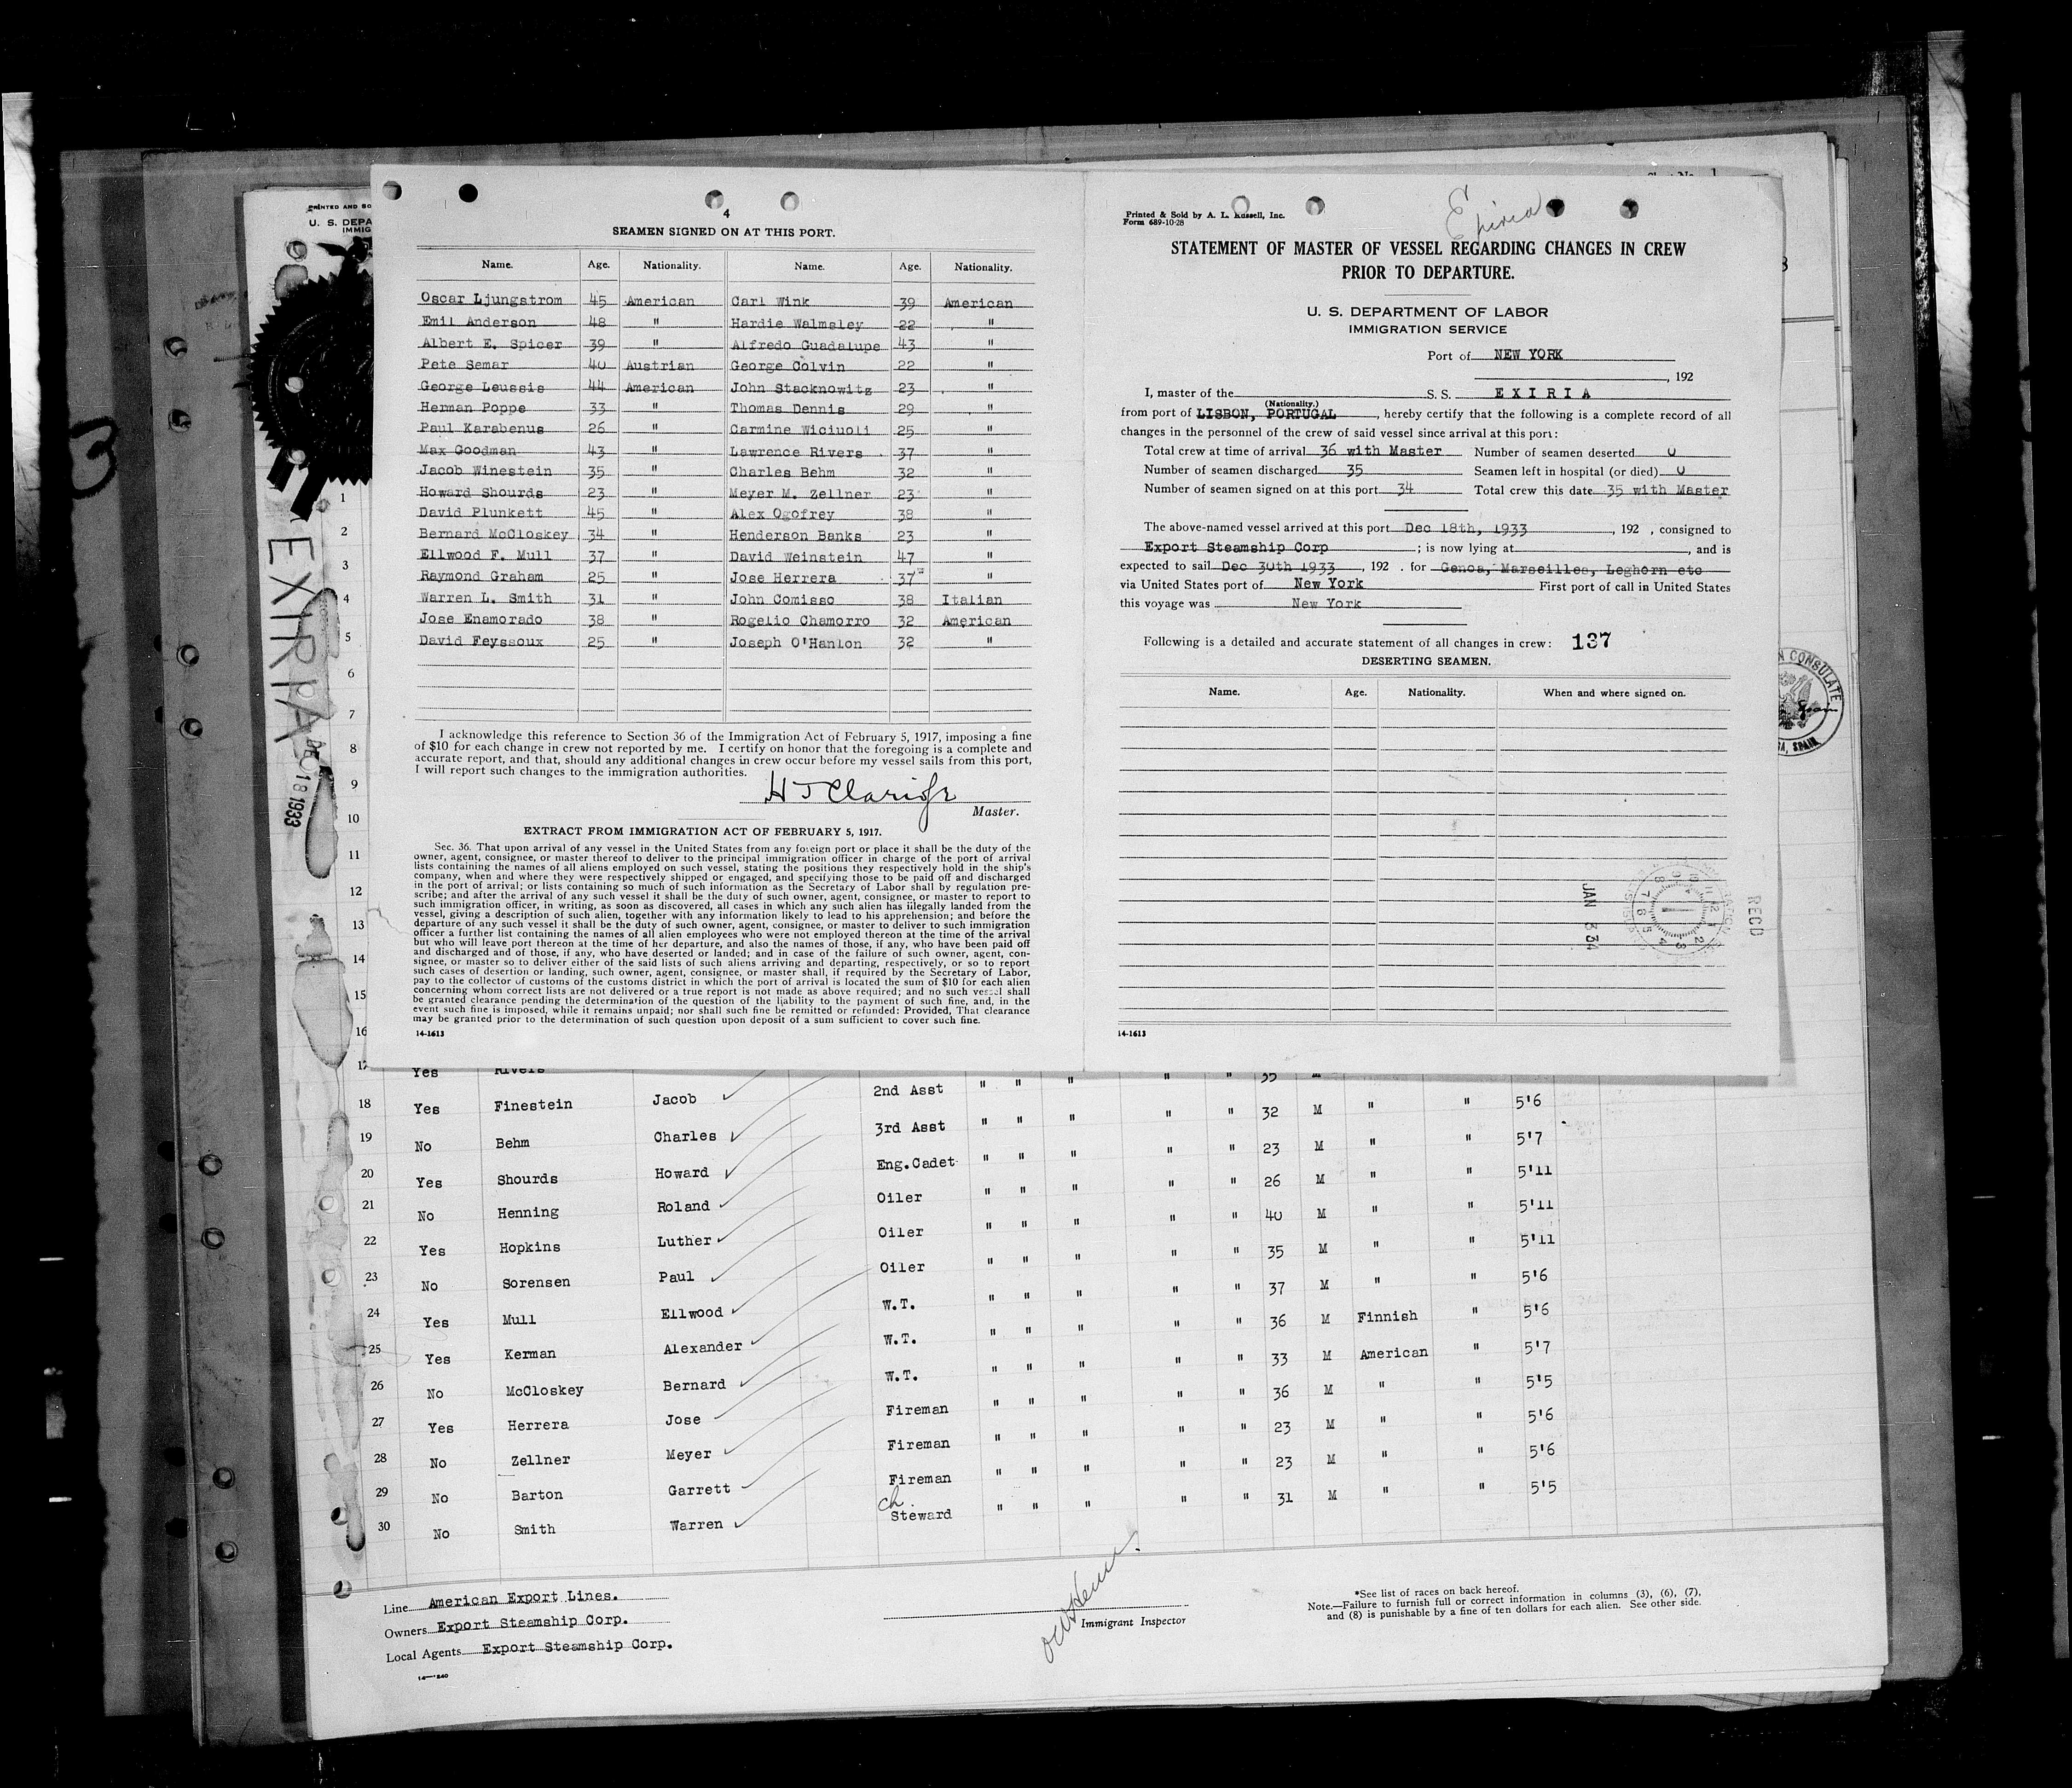 4
SEAMEN SIGNED ON AT THIS PORT.
Name. Age. Nationality. Name. Age. Nationality.
Oscar Ljungstrom 45 American Carl Wink 39 American
Emil Anderson 48 " Hardie Walmsley 22 "
Albert E. Spicer 39 " Alfredo Guadalupe 43 "
Pete Semar 40 Austrian George Colvin 22 "
George Leussis 44 American John Stacknowitz 23 "
Herman Poppe 33 " Thomas Dennis 29 "
Paul Karabenus 26 " Carmine Wiciuoli 25 "
Max Goodman 43 " Lawrence Rivers 37 "
Jacob Winestein 35 " Charles Behm 32 "
Howard Shourds 23 " Meyer M. Zellner 23 "
David Plunkett 45 " Alex Ogofrey 38 "
Bernard McCloskey 34 " Henderson Banks 23 "
Ellwood F. Mull 37 " David Weinstein 47 "
Raymond Graham 25 " Jose Herrera 37 "
Warren L. Smith 31 " John Comisso 38 Italian
Jose Enamorado 38 " Rogelio Chamorro 32 American
David Feyssoux 25 " Joseph O'Hanlon 32 "
I acknowledge this reference to Section 36 of the Immigration Act of February 5, 1917, imposing a fine
of $10 for each change in crew not reported by me. I certify on honor that the foregoing is a complete and
accurate report, and that, should any additional changes in crew occur before my vessel sails from this port,
I will report such changes to the immigration authorities.
Master.
EXTRACT FROM IMMIGRATION ACT OF FEBRUARY 5, 1917.
Sec. 36. That upon arrival of any vessel in the United States from any foreign port or place it shall be the duty of the
owner, agent, consignee, or master thereof to deliver to the principal immigration officer in charge of the port of arrival
lists containing the names of all aliens employed on such vessel, stating the positions they respectively hold in the ship's
company, when and where they were respectively shipped or engaged, and specifying those to be paid off and discharged
in the port of arrival; or lists containing so much of such information as the Secretary of Labor shall by regulation pre-
scribe; and after the arrival of any such vessel it shall be the duty of such owner, agent, consignee, or master to report to
such immigration officer, in writing, as soon as discovered, all cases in which any such alien has illegally landed from the
vessel, giving a description of such alien, together with any information likely to lead to his apprehension; and before the
departure of any such vessel it shall be the duty of such owner, agent, consignee, or master to deliver to such immigration
officer a further list containing the names of all alien employees who were not employed thereon at the time of the arrival
but who will leave port thereon at the time of her departure, and also the names of those, if any, who have been paid off
and discharged and of those, if any, who have deserted or landed; and in case of the failure of such owner, agent, con-
signee, or master so to deliver either of the said lists of such aliens arriving and departing, respectively, or so to report
such cases of desertion or landing, such owner, agent, consignee, or master shall, if required by the Secretary of Labor,
pay to the collector of customs of the customs district in which the port of arrival is located the sum of $10 for each alien
concerning whom correct lists are not delivered or a true report is not made as above required; and no such vessel shall
be granted clearance pending the determination of the question of the liability to the payment of such fine, and, in the
event such fine is imposed, while it remains unpaid; nor shall such fine be remitted or refunded: Provided, That clearance
may be granted prior to the determination of such question upon deposit of a sum sufficient to cover such fine.
14-1613
Printed & Sold by A. L. Russell, Inc.
Form 689-10-28
STATEMENT OF MASTER OF VESSEL REGARDING CHANGES IN CREW
PRIOR TO DEPARTURE.
U. S. DEPARTMENT OF LABOR
IMMIGRATION SERVICE
Port of NEW YORK
, 192
I, master of the S. S. EXIRIA
(Nationality.)
from port of LISBON, PORTUGAL, hereby certify that the following is a complete record of all
changes in the personnel of the crew of said vessel since arrival at this port:
Total crew at time of arrival 36 with Master Number of seamen deserted 0
Number of seamen discharged 35 Seamen left in hospital (or died) 0
Number of seamen signed on at this port 34 Total crew this date 35 with Master
The above-named vessel arrived at this port Dec 18th, 1933, 192 , consigned to
Export Steamship Corp; is now lying at , and is
expected to sail Dec 30th 1933, 192 . for Genoa, Marseilles, Leghorn etc
via United States port of New York First port of call in United States
this voyage was New York
Following is a detailed and accurate statement of all changes in crew: 137
DESERTING SEAMEN.
Name. Age. Nationality. When and where signed on.
JAN 3 34
REC'D
14-1613
PRINTED AND SO
U. S. DEPA
IMMIG
EXIRIA
DEC 18 1933
N CONSULATE
SPAIN
1
2
3
4
5
6
7
8
9
10
11
12
13
14
15
16
17 Yes Rivers 35
18 Yes Finestein Jacob 2nd Asst " " " " " 32 M " " 5'6
19 No Behm Charles 3rd Asst " " " " " 23 M " " 5'7
20 Yes Shourds Howard Eng.Cadet " " " " " 26 M " " 5'11
21 No Henning Roland Oiler " " " " " 40 M " " 5'11
22 Yes Hopkins Luther Oiler " " " " " 35 M " " 5'11
23 No Sorensen Paul Oiler " " " " " 37 M " " 5'6
24 Yes Mull Ellwood W.T. " " " " " 36 M Finnish " 5'6
25 Yes Kerman Alexander W.T. " " " " " 33 M American " 5'7
26 No McCloskey Bernard W.T. " " " " " 36 M " " 5'5
27 Yes Herrera Jose Fireman " " " " " 23 M " " 5'6
28 No Zellner Meyer Fireman " " " " " 23 M " " 5'6
29 No Barton Garrett Fireman " " " " " 31 M " " 5'5
30 No Smith Warren Ch. Steward
Line American Export Lines.
Owners Export Steamship Corp.
Local Agents Export Steamship Corp.
Immigrant Inspector
*See list of races on back hereof.
Note.—Failure to furnish full or correct information in columns (3), (6), (7),
and (8) is punishable by a fine of ten dollars for each alien. See other side.